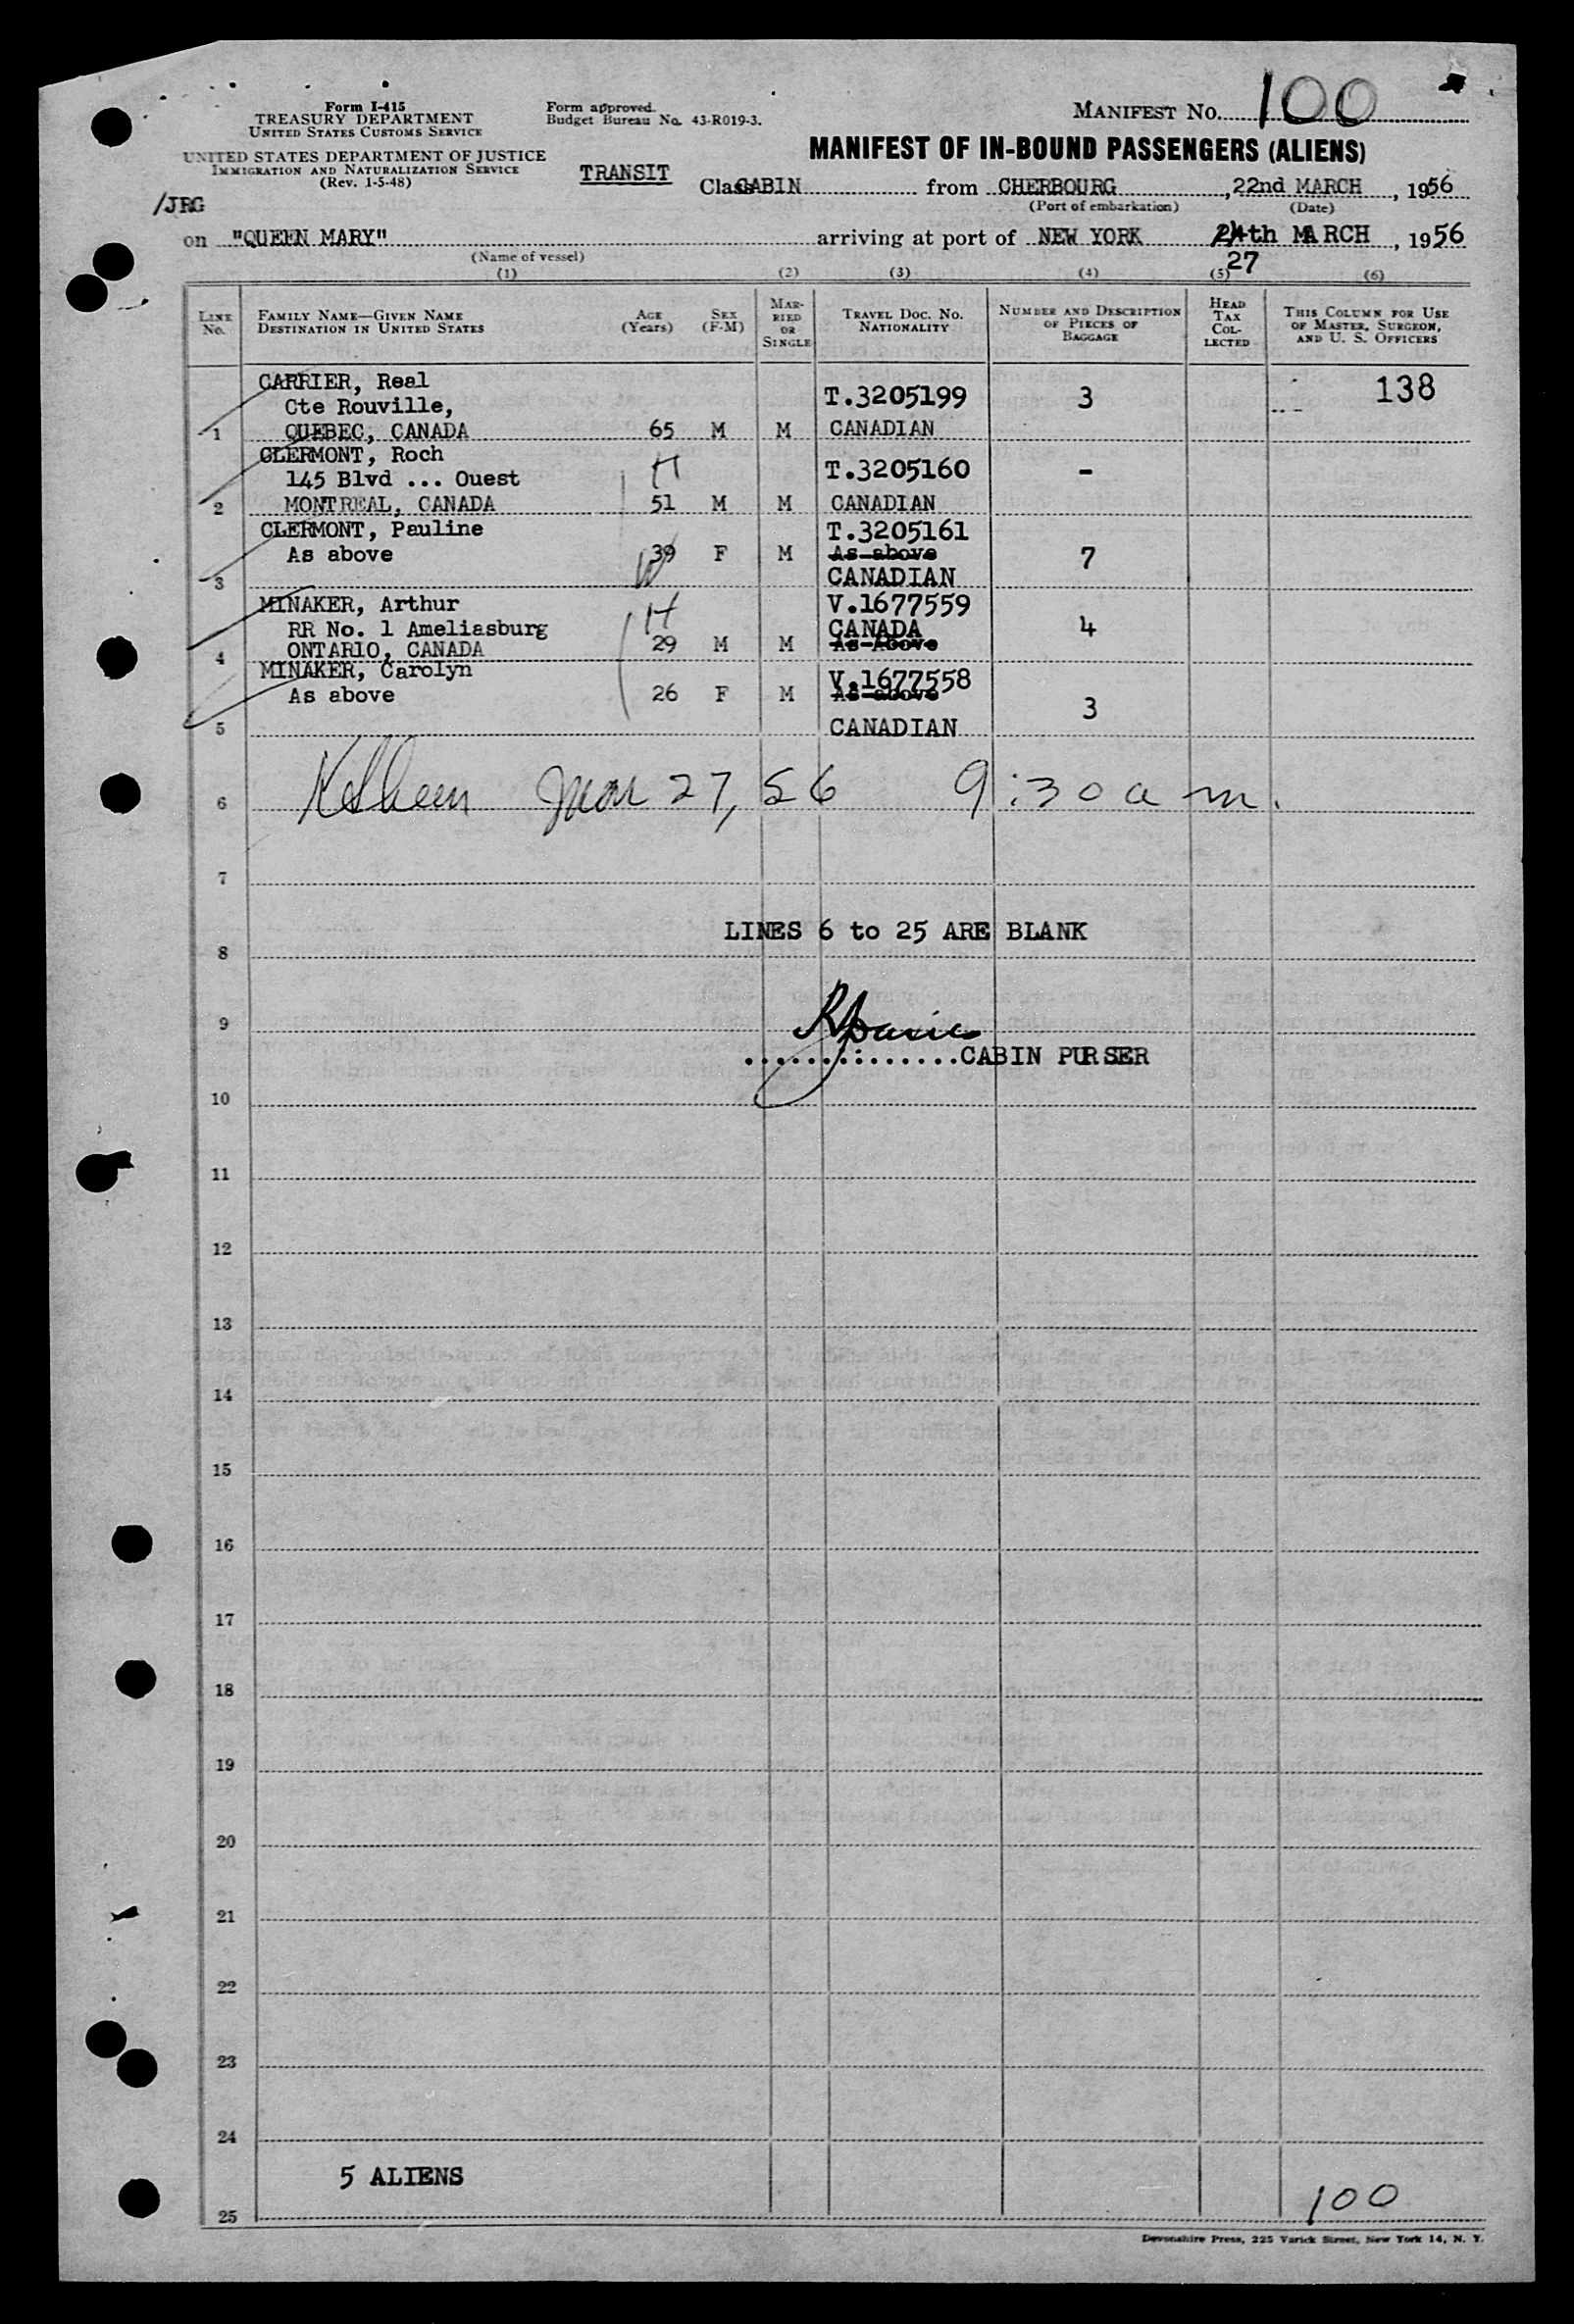 Form I-415
TREASURY DEPARTMENT
UNITED STATES CUSTOMS SERVICE
UNITED STATES DEPARTMENT OF JUSTICE
IMMIGRATION AND NATURALIZATION SERVICE
(Rev. 1-5-48)
Form approved.
Budget Bureau No. 43-R019-3.
MANIFEST No. 100
MANIFEST OF IN-BOUND PASSENGERS (ALIENS)
/JRG
TRANSIT
Class CABIN from CHERBOURG, 22nd MARCH, 1956
(Port of embarkation) (Date)
on "QUEEN MARY" arriving at port of NEW YORK 24th MARCH, 1956
27
(Name of vessel)
(1) (2) (3) (4) (5) (6)
LINE No. FAMILY NAME—GIVEN NAME DESTINATION IN UNITED STATES AGE (Years) SEX (F-M) MARRIED OR SINGLE TRAVEL DOC. NO. NATIONALITY NUMBER AND DESCRIPTION OF PIECES OF BAGGAGE HEAD TAX COLLECTED THIS COLUMN FOR USE OF MASTER, SURGEON, AND U. S. OFFICERS
CARRIER, Real
Cte Rouville, T.3205199 3 138
1 QUEBEC, CANADA 65 M M CANADIAN
CLERMONT, Roch
145 Blvd ... Ouest H T.3205160 -
2 MONTREAL, CANADA 51 M M CANADIAN
CLERMONT, Pauline T.3205161
As above 39 F M As above 7
W
3 CANADIAN
MINAKER, Arthur H V.1677559
RR No. 1 Ameliasburg CANADA 4
4 ONTARIO, CANADA 29 M M As Above
MINAKER, Carolyn V.1677558
As above 26 F M As above 3
5 CANADIAN
6 Mar 27, 56 9:30 a m.
7
LINES 6 to 25 ARE BLANK
8
9
..............CABIN PURSER
10
11
12
13
14
15
16
17
18
19
20
21
22
23
24
5 ALIENS
25 100
Devonshire Press, 225 Varick Street, New York 14, N. Y.